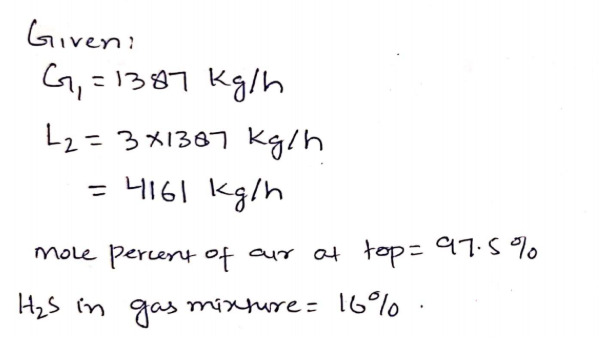 Given:
G₁ = 1387 Kg/h
L₂ = 3 × 1387 Kg/h
= 4161 Kg/h
mole percent of air at top = 97.5 %
H₂S in gas mixture = 16% .